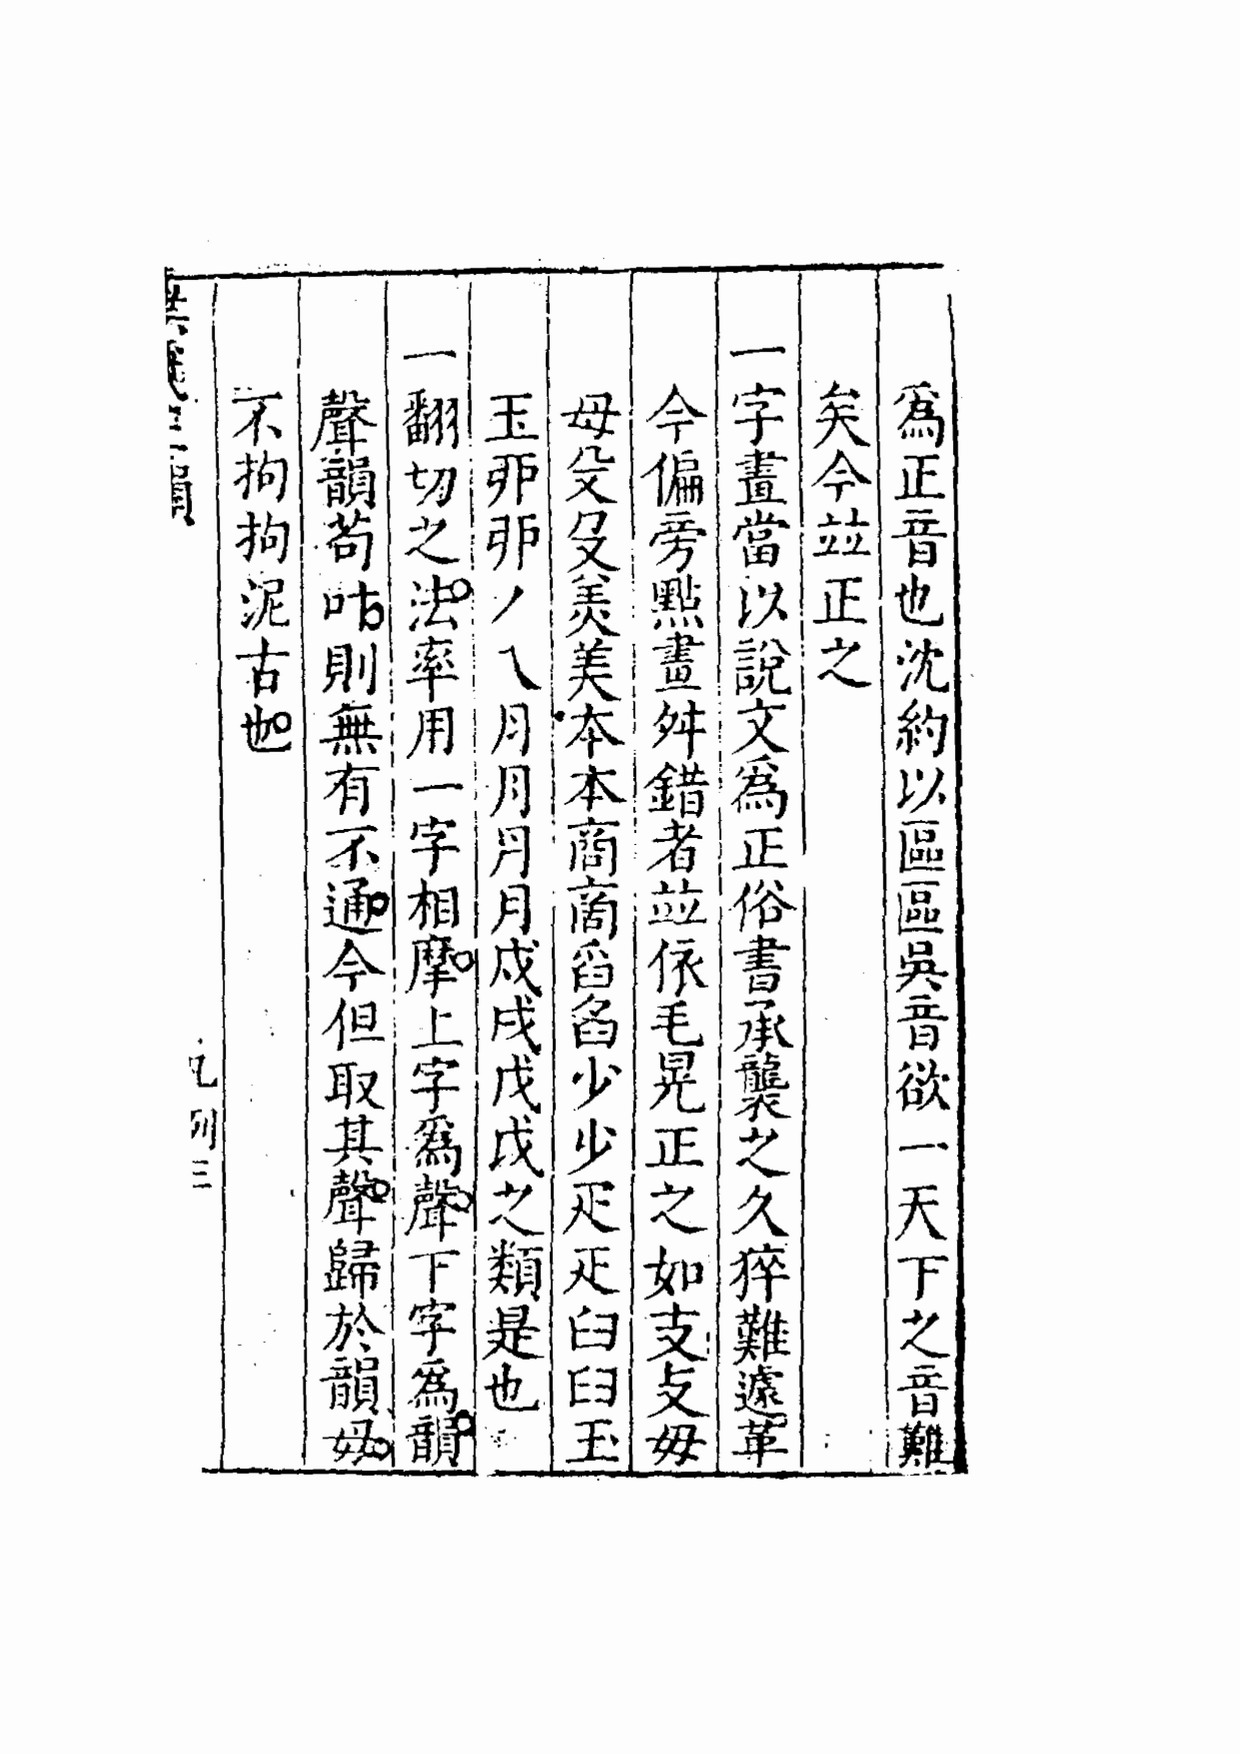 爲正音也沈約以區區吳音欲一天下之音難
矣今竝正之
一字畫當以說文爲正俗書承襲之久猝難遽革
今偏旁點畫舛錯者竝依毛晃正之如支攴毋
母殳㕛羙美夲本商啇舀臽少少疋疋臼𦥑玉
王丣丱丿乀月⺼丹月戍戌戊戉之類是也
一翻切之法率用一字相摩上字爲聲下字爲韻
聲韻苟叶則無有不通今但取其聲歸於韻母
不拘拘泥古也
洪武正韻
凡例三